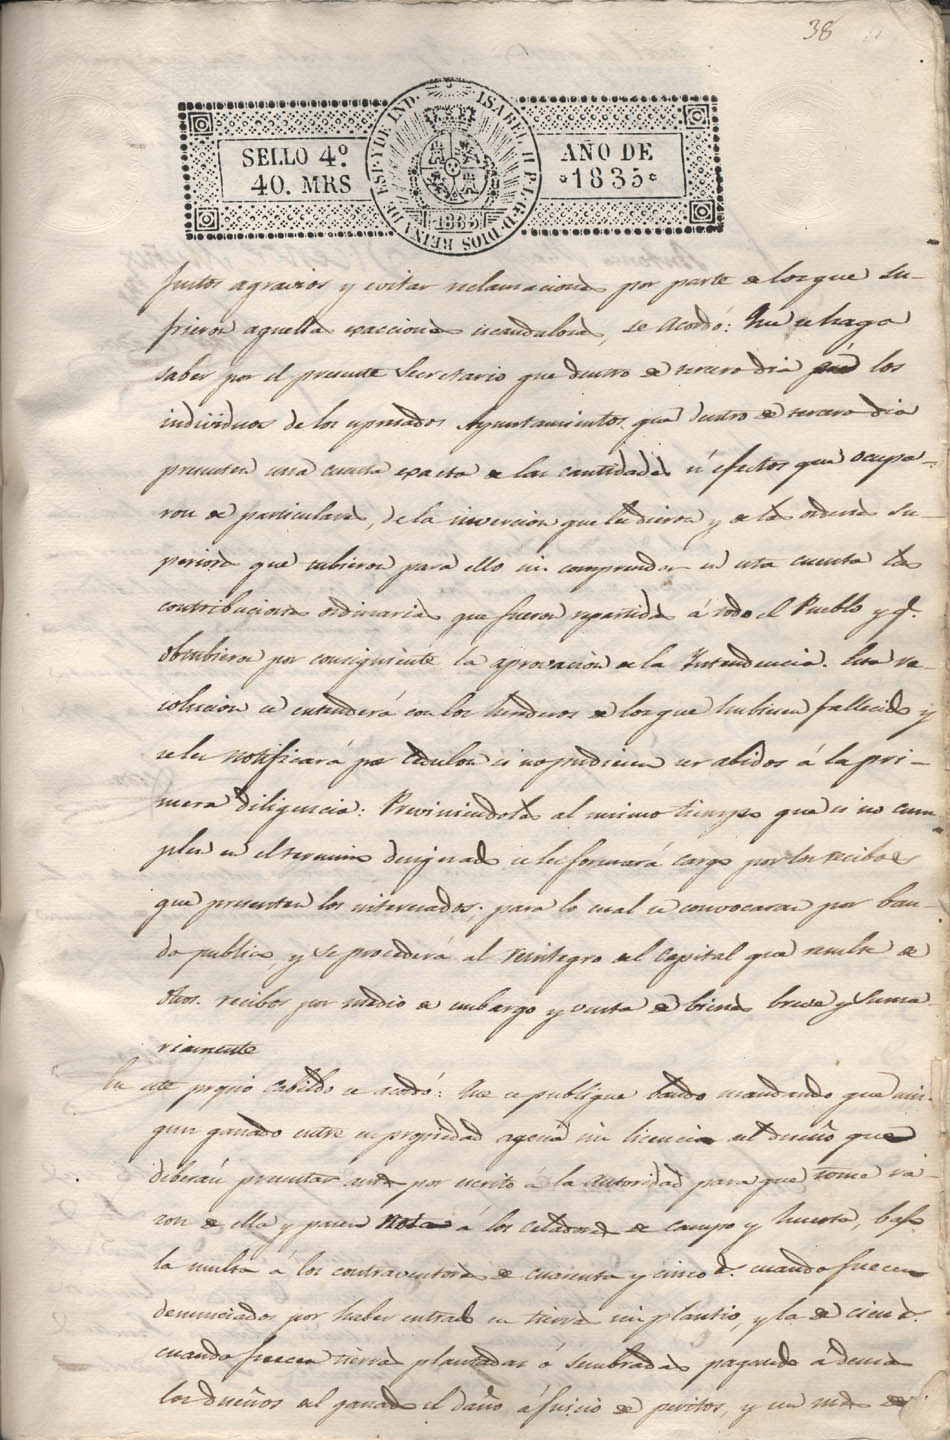 38
SELLO 4º
40. MRS
ISABEL II P. L. G. D. DIOS REINA DE ESP. Y DE IND.
1835
AÑO DE
1835
justos agravios y evitar reclamaciones por parte de los que su-
frieron aquellas exacciones escandalosas, se acordó: Que se haga
saber por el presente Secretario que dentro de tercero dia los
individuos de los espresados Ayuntamientos que dentro de tercero dia
presenten una cuenta exacta de las cantidades ú efectos que ocupa-
ron de particulares, de la inversion que les dieron y de las ordenes su-
periores que tubieron para ello sin comprender en esta cuenta las
contribuciones ordinarias que fueron repartidas á todo el Pueblo y q.
obtubieron por consiguiente la aprovacion de la Intendencia. Esta re-
solucion se entenderá con los herederos de los que hubiesen fallecido y
se les notificará por cedulon si no pudiesen ser abidos á la pri-
mera diligencia: Previniendoles al mismo tiempo que si no cum-
plen en el termino designado se les formará cargo por los recibos
que presenten los interesados; para lo cual se convocaran por ban-
do publico, y se procederá al reintegro del Capital que resulte de
dhos. recibos por medio de embargo y venta de bienes breve y suma-
riamente
En este propio Cabildo se acordó: Que se publique bando mandando que nin-
gun ganado entre en propiedad agena sin licencia del dueño que
deberán presentar antes por escrito á la autoridad para que tome ra-
zon de ella y pasen nota á los celadores de campo y huerta, bajo
la multa á los contraventores de cuarenta y cinco r.s cuando fuecen
denunciados por haber entrado en tierra sin plantio, y la de cien r.s
cuando fuecen tierras plantadas ó sembradas pagando ademas
los dueños del ganado el daño á juicio de peritos, y un mes de